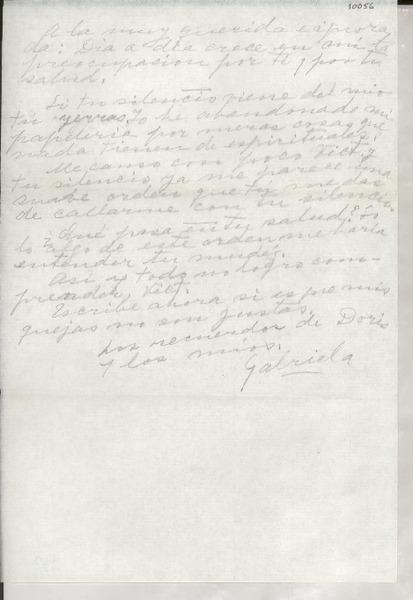 10056
A la muy querida e ignora
da: Día a día crece en mí la
preocupación por ti y por tu
salud.
Si tu silencio viene del mío
tu yerras. Yo he abandonado mi
papelería por meras cosas que
nada tienen de espirituales.
Me canso con poco Vict. y
tu silencio ya me parece una
suave orden que tú me das
de callarme con tu silencio.
¿Qué pasa en tu salud? Só
lo algo de este orden me haría
entender tu mudez.
Así y todo no logro com-
prender, Vict.
Escribe ahora si es que mis
quejas no son justas.
Los recuerdos de Doris
y los míos.
Gabriela